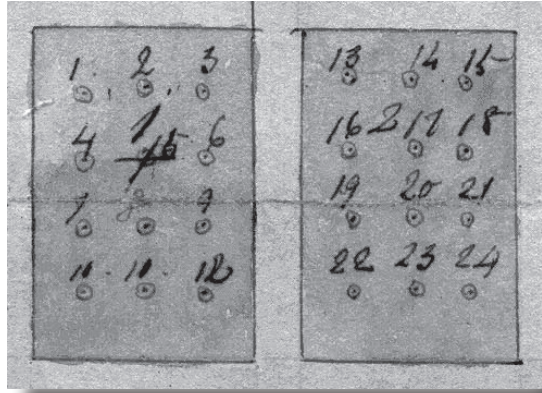 1. 2 3
4 6
7 8 9
11. 12
13 14 15
16 2 17 18
19 20 21
22 23 24